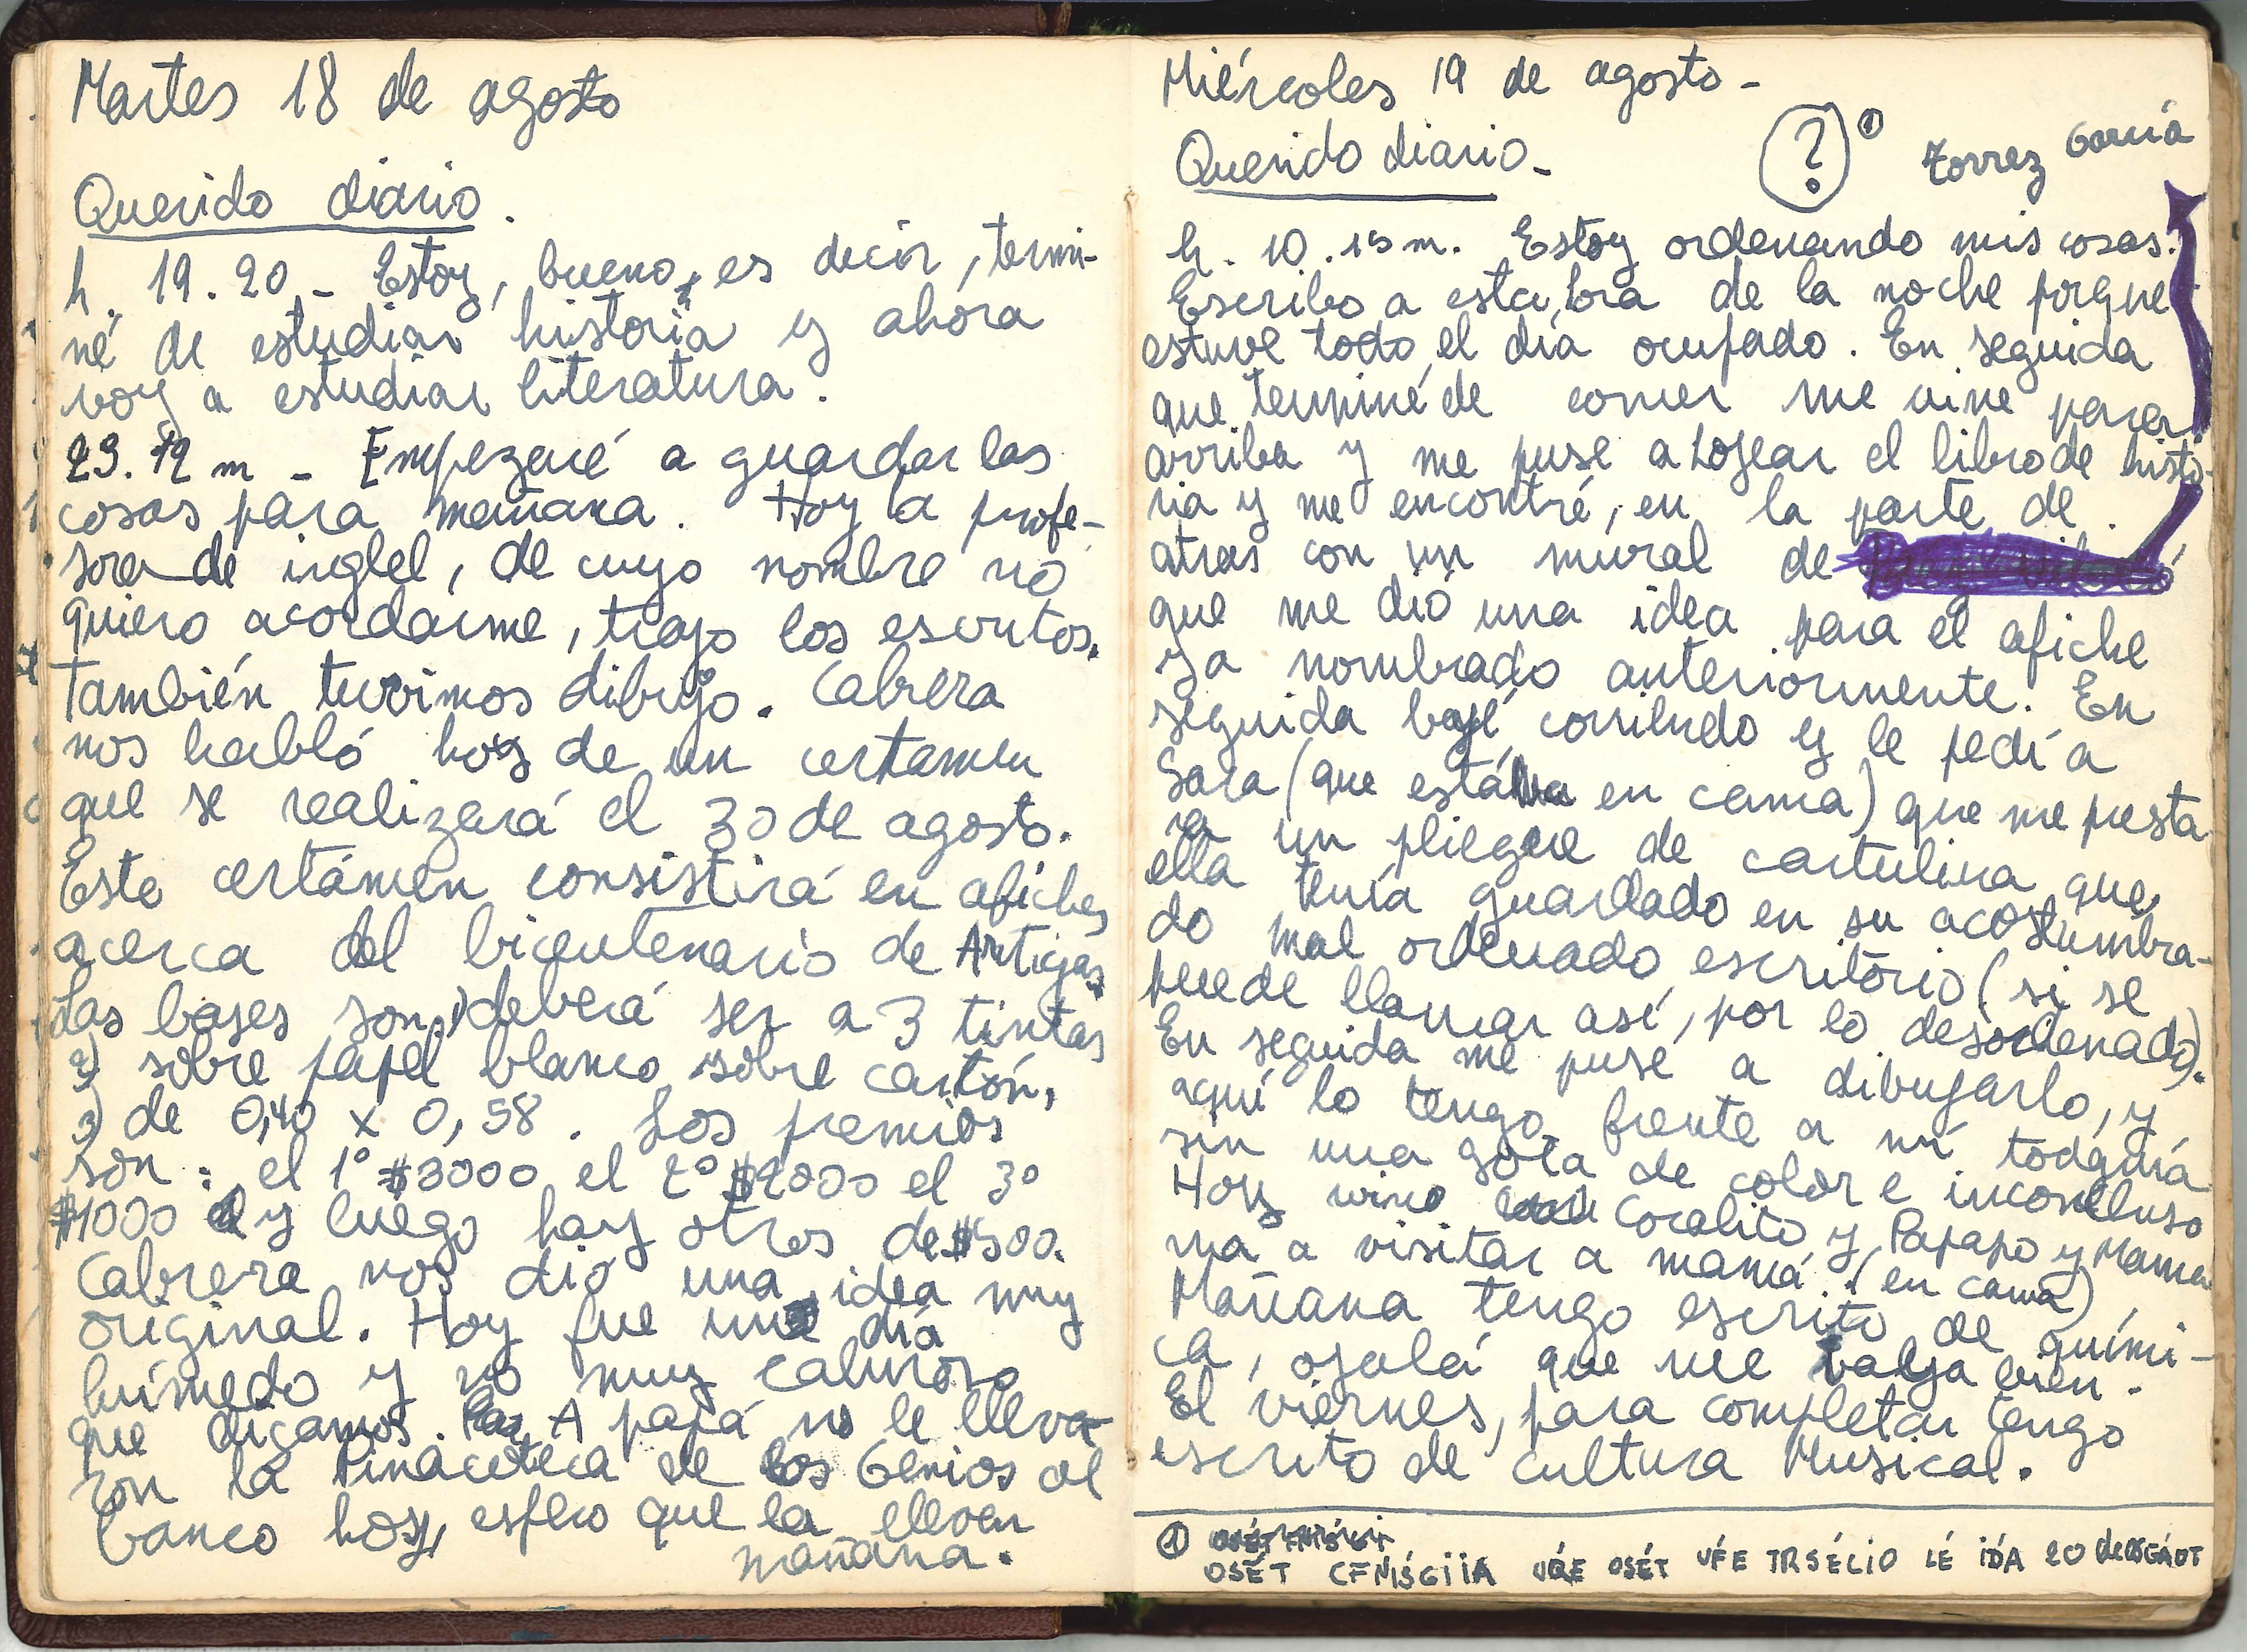 Martes 18 de agosto
Querido diario.
h. 19.20 - Estoy, bueno, es decir, termi-
né de estudiar historia y ahora
voy a estudiar literatura.
23.12 m - Empezaré a guardar las
cosas para mañana. Hoy la profe-
sora de inglel, de cuyo nombre no
quiero acordarme, trajo los escritos.
También tuvimos dibujo. Cabrera
nos habló hoy de un certamen
que se realizará el 30 de agosto.
Este certámen consistirá en afiches
acerca del bicentenario de Artigas.
Las bases son: 1) deberá ser a 3 tintas
2) sobre papel blanco sobre cartón,
3) de 0,40 x 0,58. Los premios
son: el 1° $3000 el 2° $2000 el 3°
$1000 y luego hay otros de $500.
Cabrera nos dió una idea muy
original. Hoy fue un día
húmedo y no muy caluroso
que digamos. A papá no le lleva-
ron la Pinacoteca de los Genios al
banco hoy, espero que la lleven
mañana.
Miércoles 19 de agosto -
Querido diario -
? ① Torrez García
h. 10.15 m. Estoy ordenando mis cosas.
Escribo a esta hora de la noche porque
estuve todo el día ocupado. En seguida
que terminé de comer me vine para
arriba y me puse a hojear el libro de histo-
ria y me encontré, en la parte de
atras con un mural de
que me dió una idea para el afiche
ya nombrado anteriormente. En
seguida bajé corriendo y le pedí a
Sara (que estába en cama) que me presta
ra un pliegue de cartulina que
ella tenía guardado en su acostumbra-
do mal ordenado escritorio (si se
puede llamar así, por lo desordenado).
En seguida me puse a dibujarlo, y
aquí lo tengo frente a mí todavía
sin una gota de color e inconcluso
Hoy vino Coralito y Papapo y Mama
ma a visitar a mamá. (en cama)
Mañana tengo escrito de quími-
ca, ojalá que me vaya bien.
El viernes, para completar tengo
escrito de cultura Musical.
① OSÉT CFNISGIIA OSÉT TRSÉCIO LÉ IDA 20